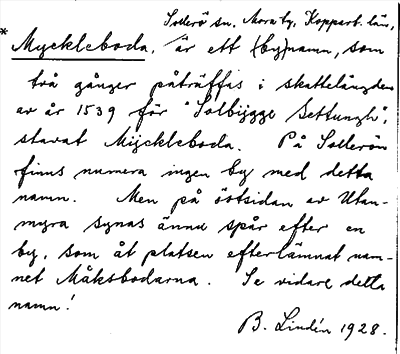 Sollerö sn. Mora tg. Kopparb. län.
* Myckleboda, är ett (by)namn, som
två gånger påträffas i skattelängden
av år 1539 för "Solbijgge Settungh",
stavat Mijckleboda. På Sollerön
finns numera ingen by med detta
namn. Men på östsidan av Utan-
myra synas ännu spår efter en
by, som åt platsen efterlämnat nam-
net Måksbodarna. Se vidare detta
namn!
B. Lindén 1928.